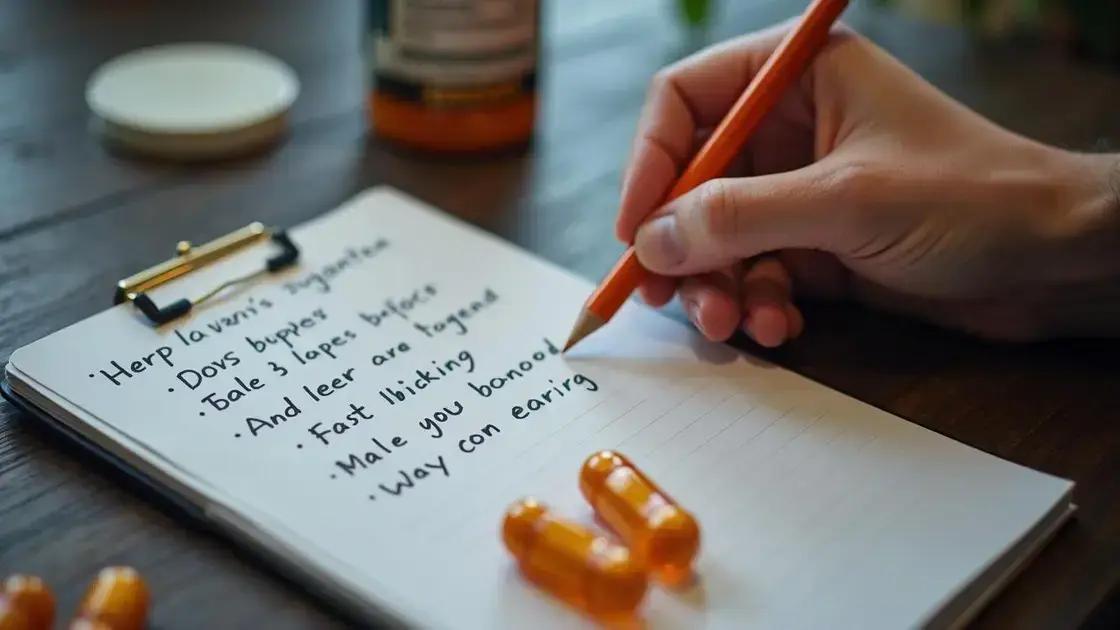 · Herp lavani's Jyganten
· Dovs buppes
· Sale 3 lapes before
· And leer are togend
· Fast Ibicking
· Male you banood
· Way con earirg